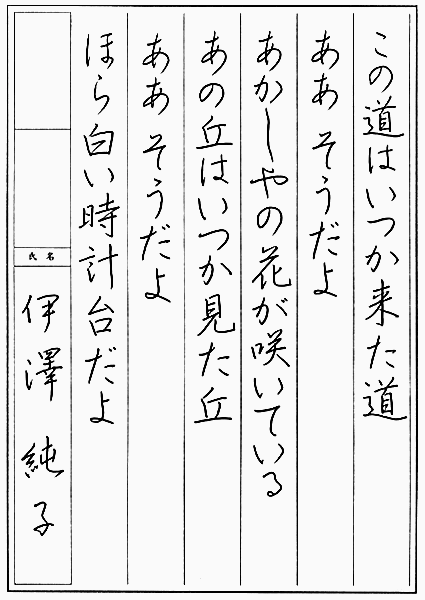 この道はいつか来た道
ああ そうだよ
あかしやの花が咲いている
あの丘はいつか見た丘
ああ そうだよ
ほら白い時計台だよ
氏名
伊澤 純子